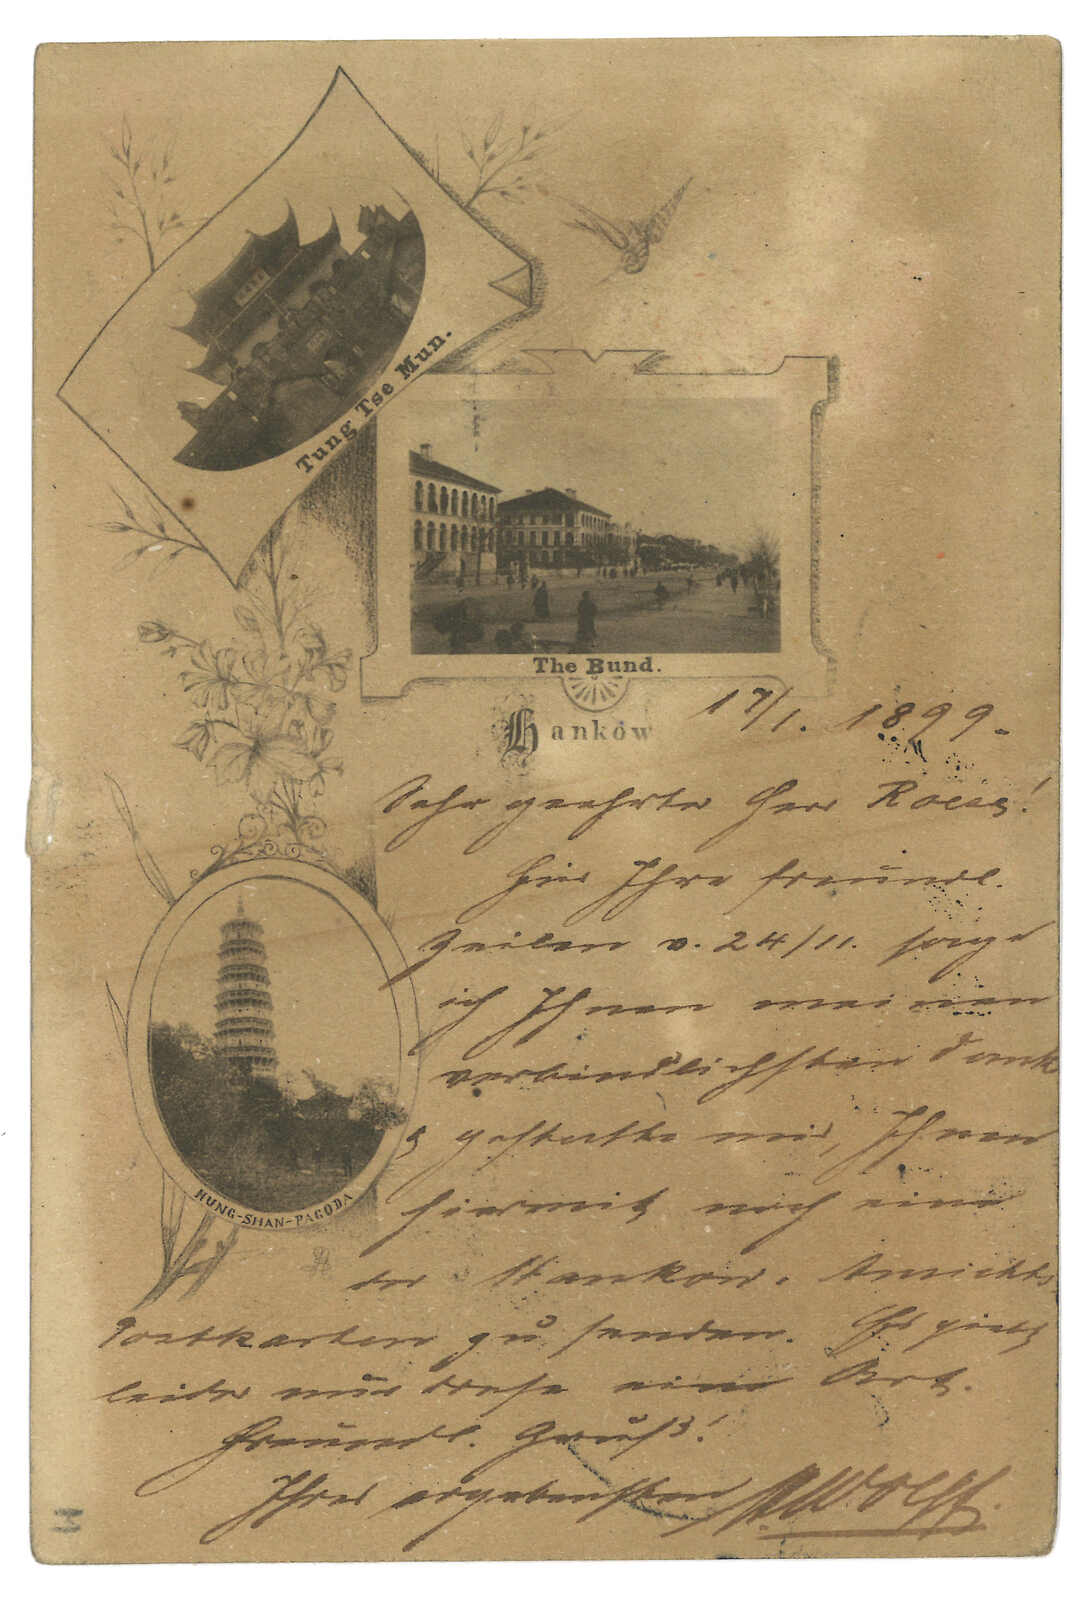 Tung Tse Mun.
The Bund.
Hankow
17/1. 1899.
Sehr geehrter Herr
Für Ihre freundl.
Zeilen v. 24/11. sage
ich Ihnen meinen
verbindlichsten Dank
& gestatte mir, Ihnen
hiermit noch eine
der Hankow. Ansichts
Postkarten zu senden. Es giebt
leider nur diese eine Art.
Freundl. Gruß!
Ihr ergebenster
HUNG-SHAN-PAGODA